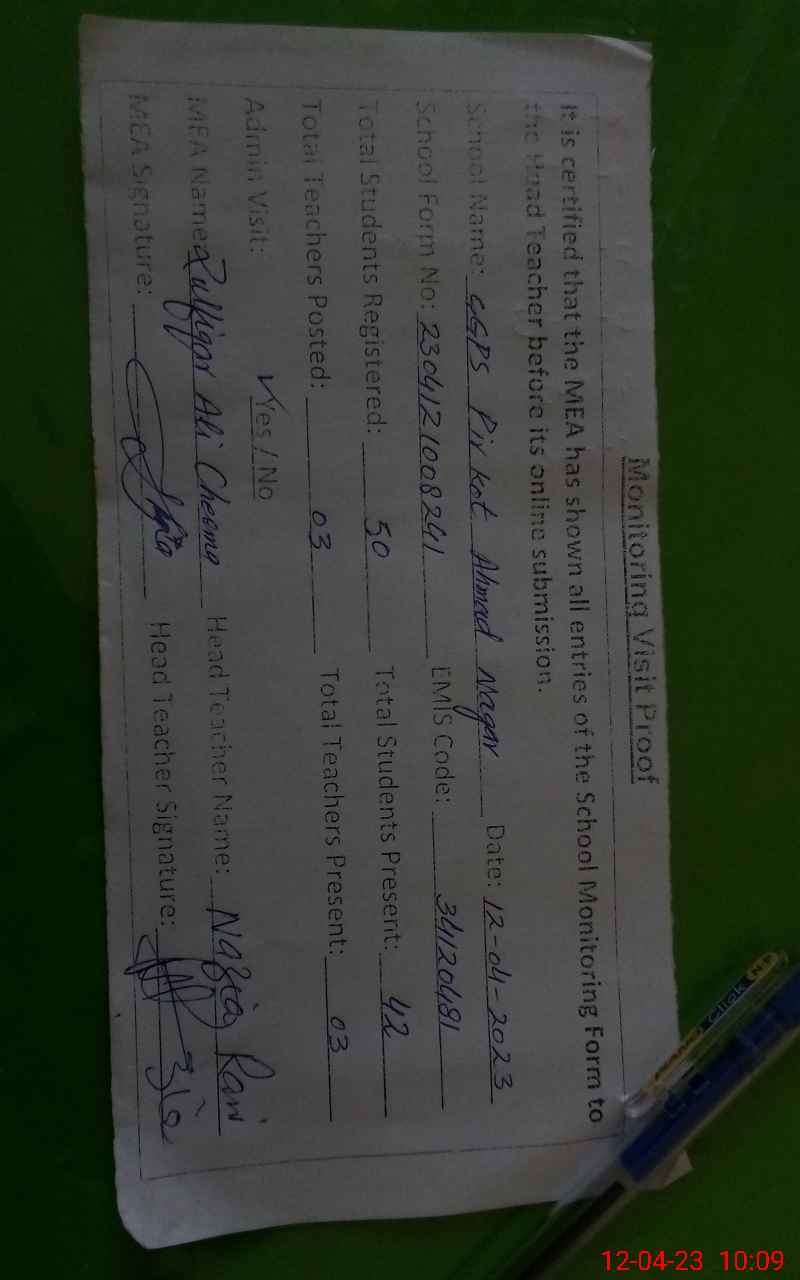 Monitoring Visit Proof
It is certified that the MEA has shown all entries of the School Monitoring Form to
the Head Teacher before its online submission.
School Name: GGPS Pir kot Ahmad Nagar Date: 12-04-2023
School Form No: 2304121008241 EMIS Code: 34120481
Total Students Registered: 50 Total Students Present: 42
Total Teachers Posted: 03 Total Teachers Present: 03
Admin Visit: ✓Yes / No
MEA Name: Zulfiqar Ali Cheema Head Teacher Name: Nazia Rani
MEA Signature: Head Teacher Signature:
Click
12-04-23 10:09